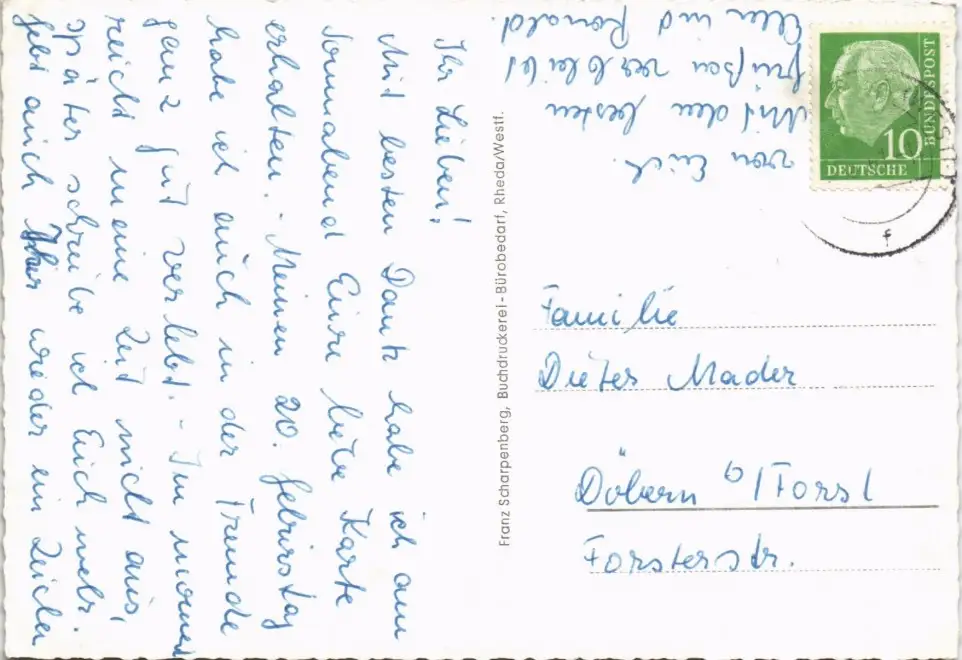 Ihr Lieben!
Mit besten Dank habe ich am
Sonnabend Eure liebe Karte
erhalten. - Meinen 20. Geburtstag
habe ich auch in der Fremde
ganz gut verlebt. - Im moment
reicht meine Zeit nicht aus,
später schreibe ich Euch mehr.
Gebt auch Ihr wieder ein Zeichen
von Euch.
Mit den besten
Grüßen verbleibt
Ellen und Ronald.
Franz Scharpenberg, Buchdruckerei - Bürobedarf, Rheda/Westf.
10
DEUTSCHE
BUNDESPOST
f
Familie
Dieter Mader
Döbern b/Forst
Forsterstr.